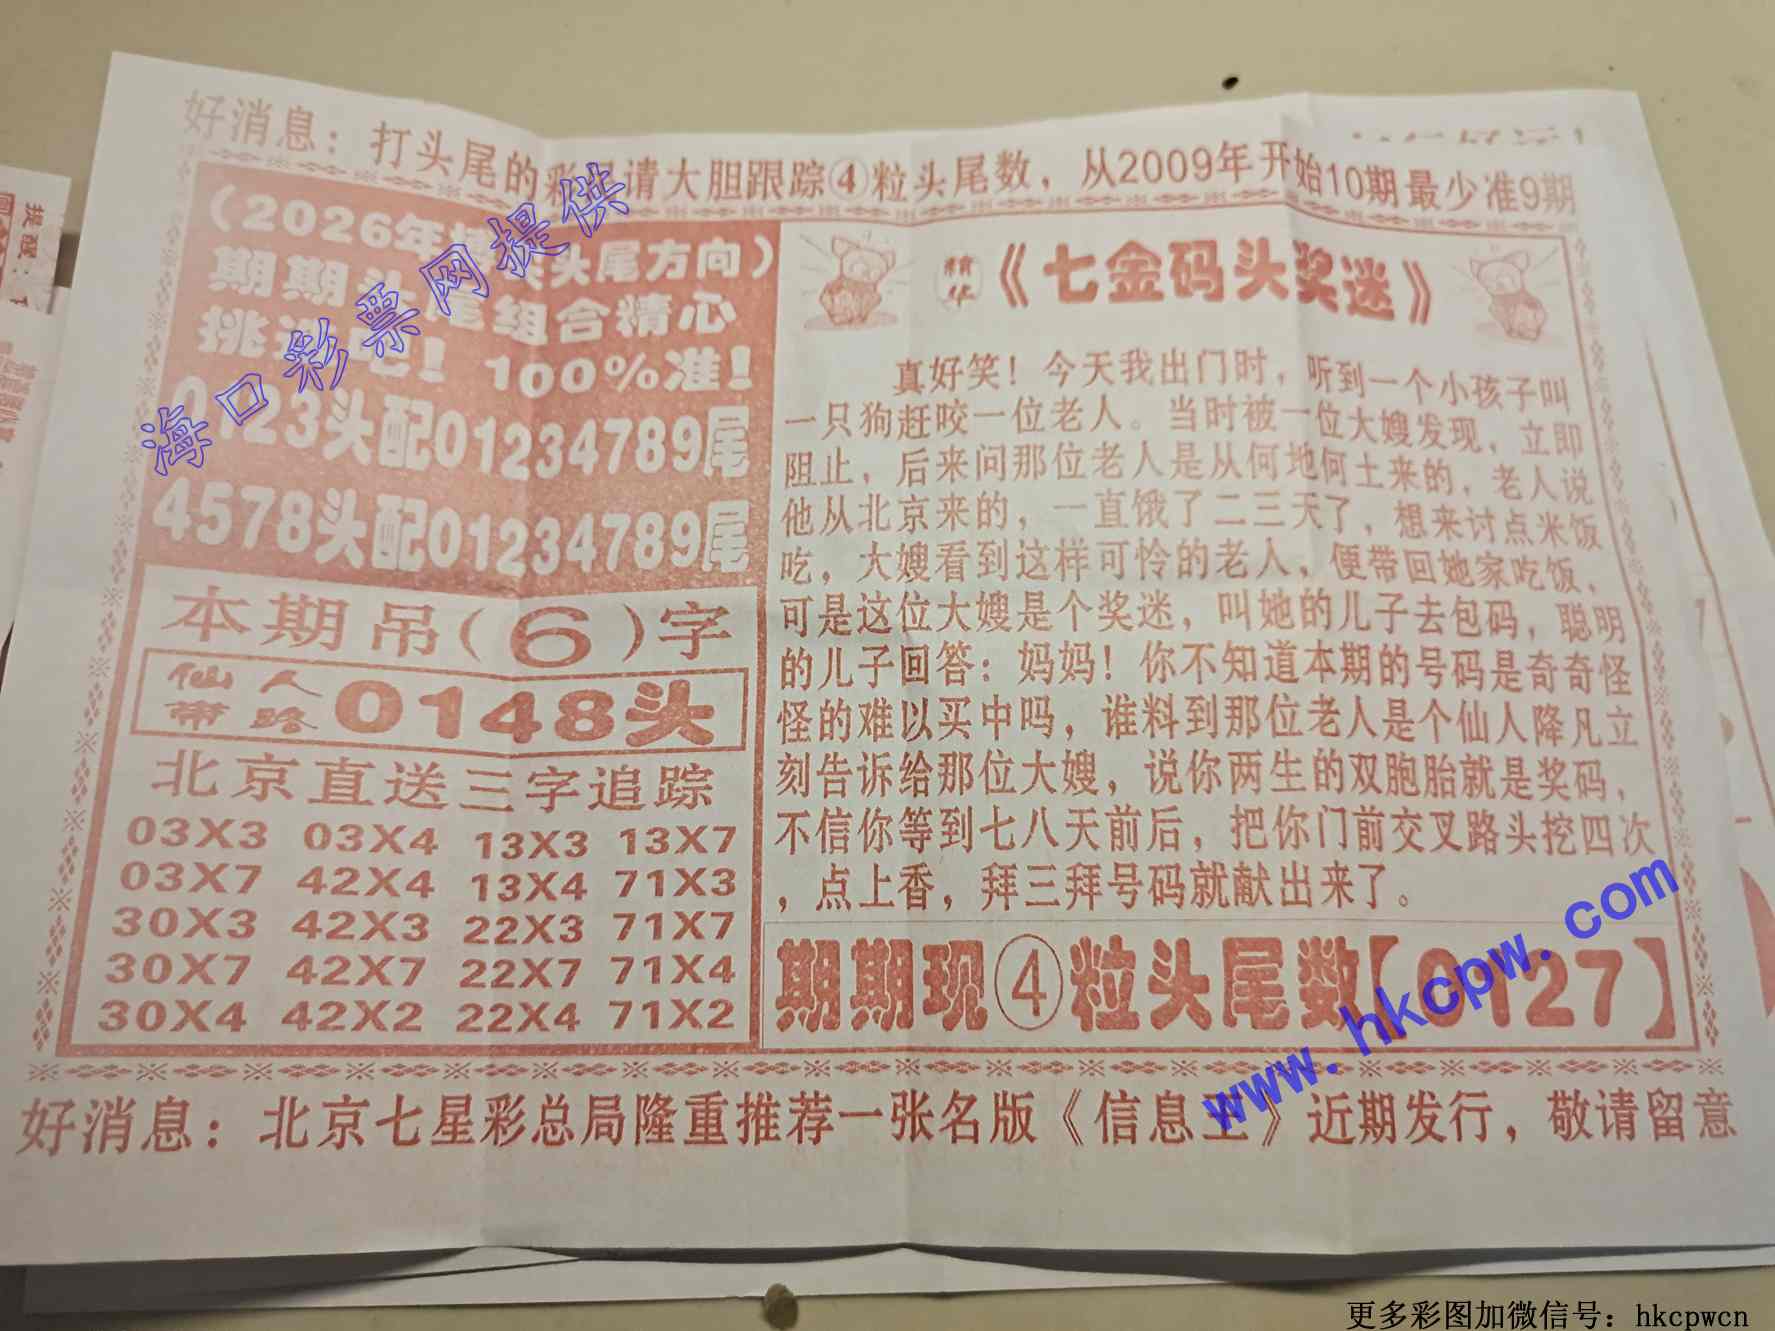 好消息：打头尾的彩民请大胆跟踪④粒头尾数，从2009年开始10期最少准9期
（2026年 头尾方向）
期期头尾组合精心
挑选吧！100%准！
0123头配01234789尾
4578头配01234789尾
本期吊（6）字
仙人带路 0148头
北京直送三字追踪
03X3 03X4 13X3 13X7
03X7 42X4 13X4 71X3
30X3 42X3 22X3 71X7
30X7 42X7 22X7 71X4
30X4 42X2 22X4 71X2
精华《七金码头奖迷》
真好笑！今天我出门时，听到一个小孩子叫
一只狗赶咬一位老人。当时被一位大嫂发现，立即
阻止，后来问那位老人是从何地何土来的，老人说
他从北京来的，一直饿了二三天了，想来讨点米饭
吃，大嫂看到这样可怜的老人，便带回她家吃饭，
可是这位大嫂是个奖迷，叫她的儿子去包码，聪明
的儿子回答：妈妈！你不知道本期的号码是奇奇怪
怪的难以买中吗，谁料到那位老人是个仙人降凡立
刻告诉给那位大嫂，说你两生的双胞胎就是奖码，
不信你等到七八天前后，把你门前交叉路头挖四次
，点上香，拜三拜号码就献出来了。
期期现④粒头尾数【0127】
好消息：北京七星彩总局隆重推荐一张名版《信息王》近期发行，敬请留意
海口彩票网提供
www.hkcpw.com
提醒：
更多彩图加微信号：hkcpwcn